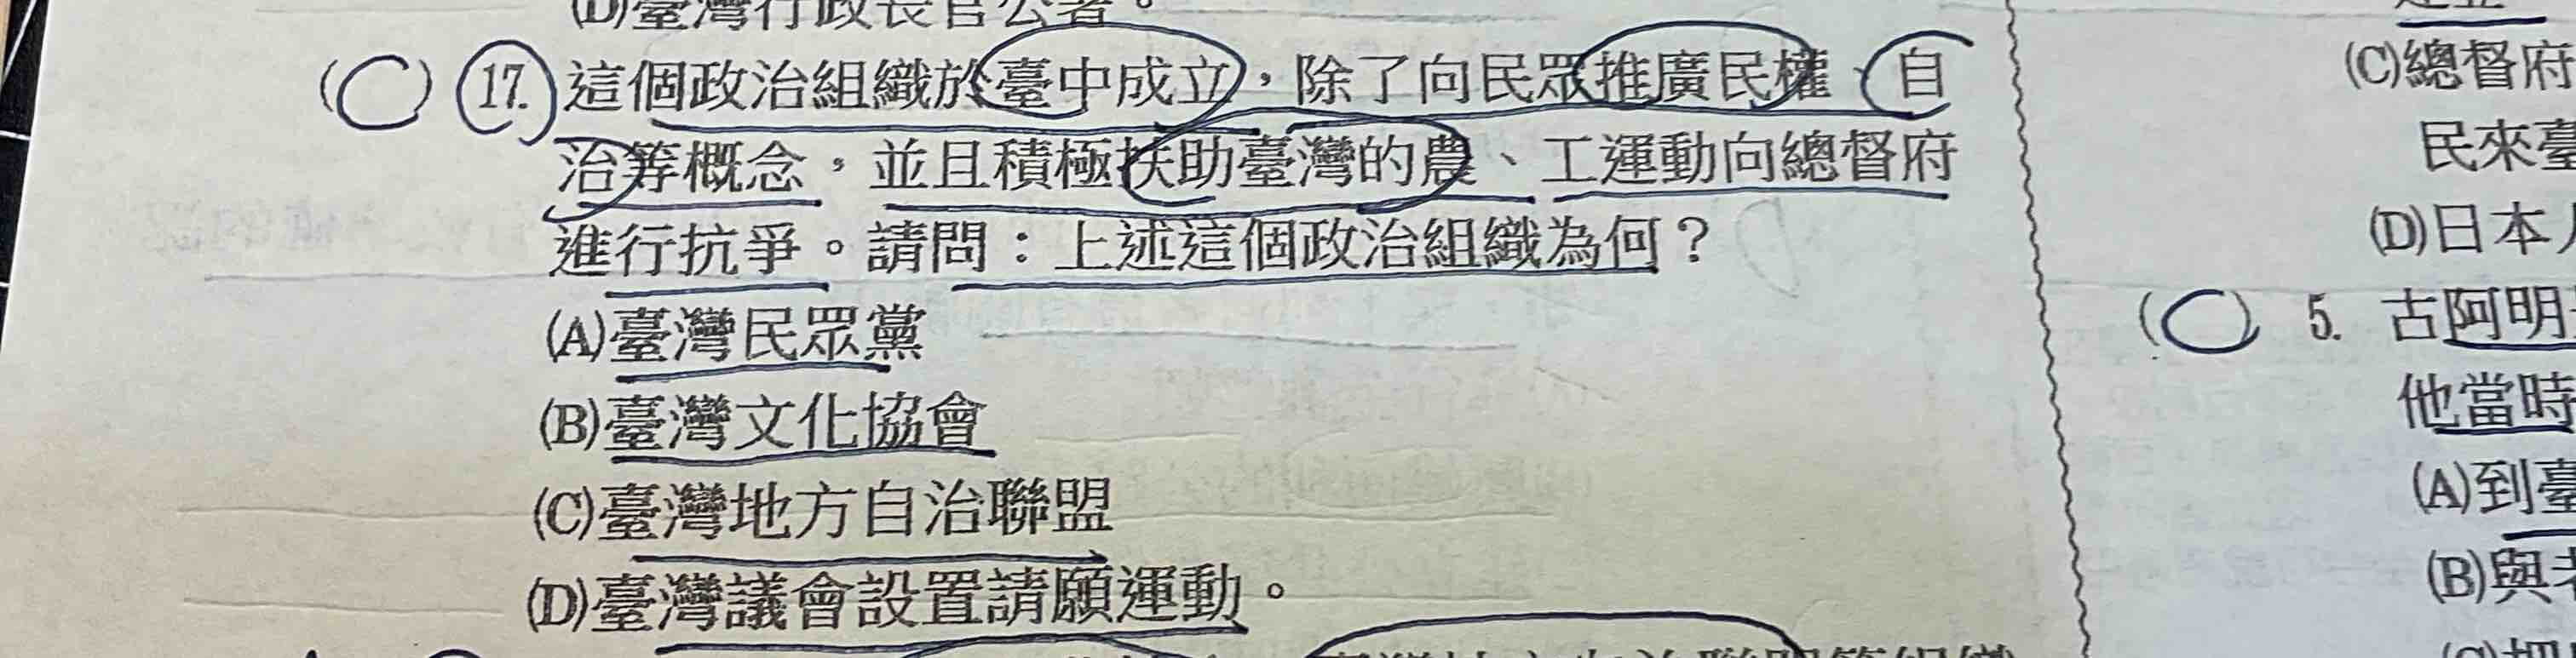 (D)臺灣行政長官公署。
(C) 17. 這個政治組織於臺中成立，除了向民眾推廣民權、自
治等概念，並且積極扶助臺灣的農、工運動向總督府
進行抗爭。請問：上述這個政治組織為何？
(A)臺灣民眾黨
(B)臺灣文化協會
(C)臺灣地方自治聯盟
(D)臺灣議會設置請願運動。
(C)總督府
民來臺
(D)日本
(C) 5. 古阿明
他當時
(A)到臺
(B)與